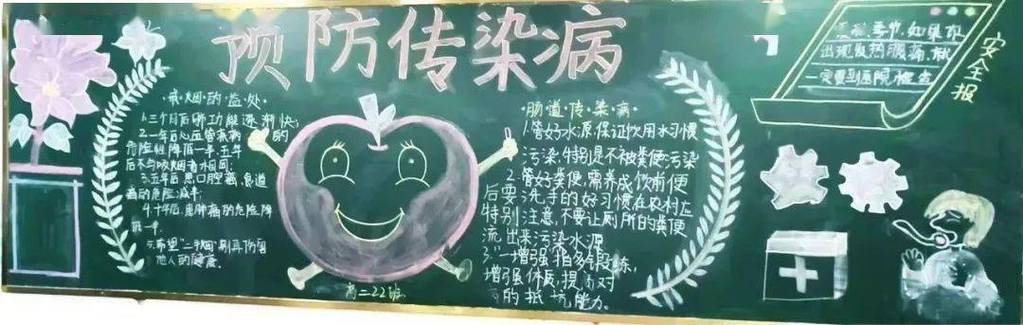 预防传染病
·戒烟的益处·
1.三个月后肺功能逐渐快;
2.一年后心血管疾病的
危险性降低一半,五年
后不与吸烟者相同;
3.五年后患口腔癌、食道
癌的危险减半;
4.十年后患肺癌的危险降
低一半.
他人的健康.
·肠道传染病·
1.管好水源,保证饮用水习惯
污染,特别是不被粪便污染
2.管好粪便,需养成饮前便
后要洗手的好习惯在农村应
特别注意,不要让厕所的粪便
流出来污染水源
增强体质,提高对
的抵抗能力.
高二22班
出现发热腹痛,就
一定要到医院检查
安全报